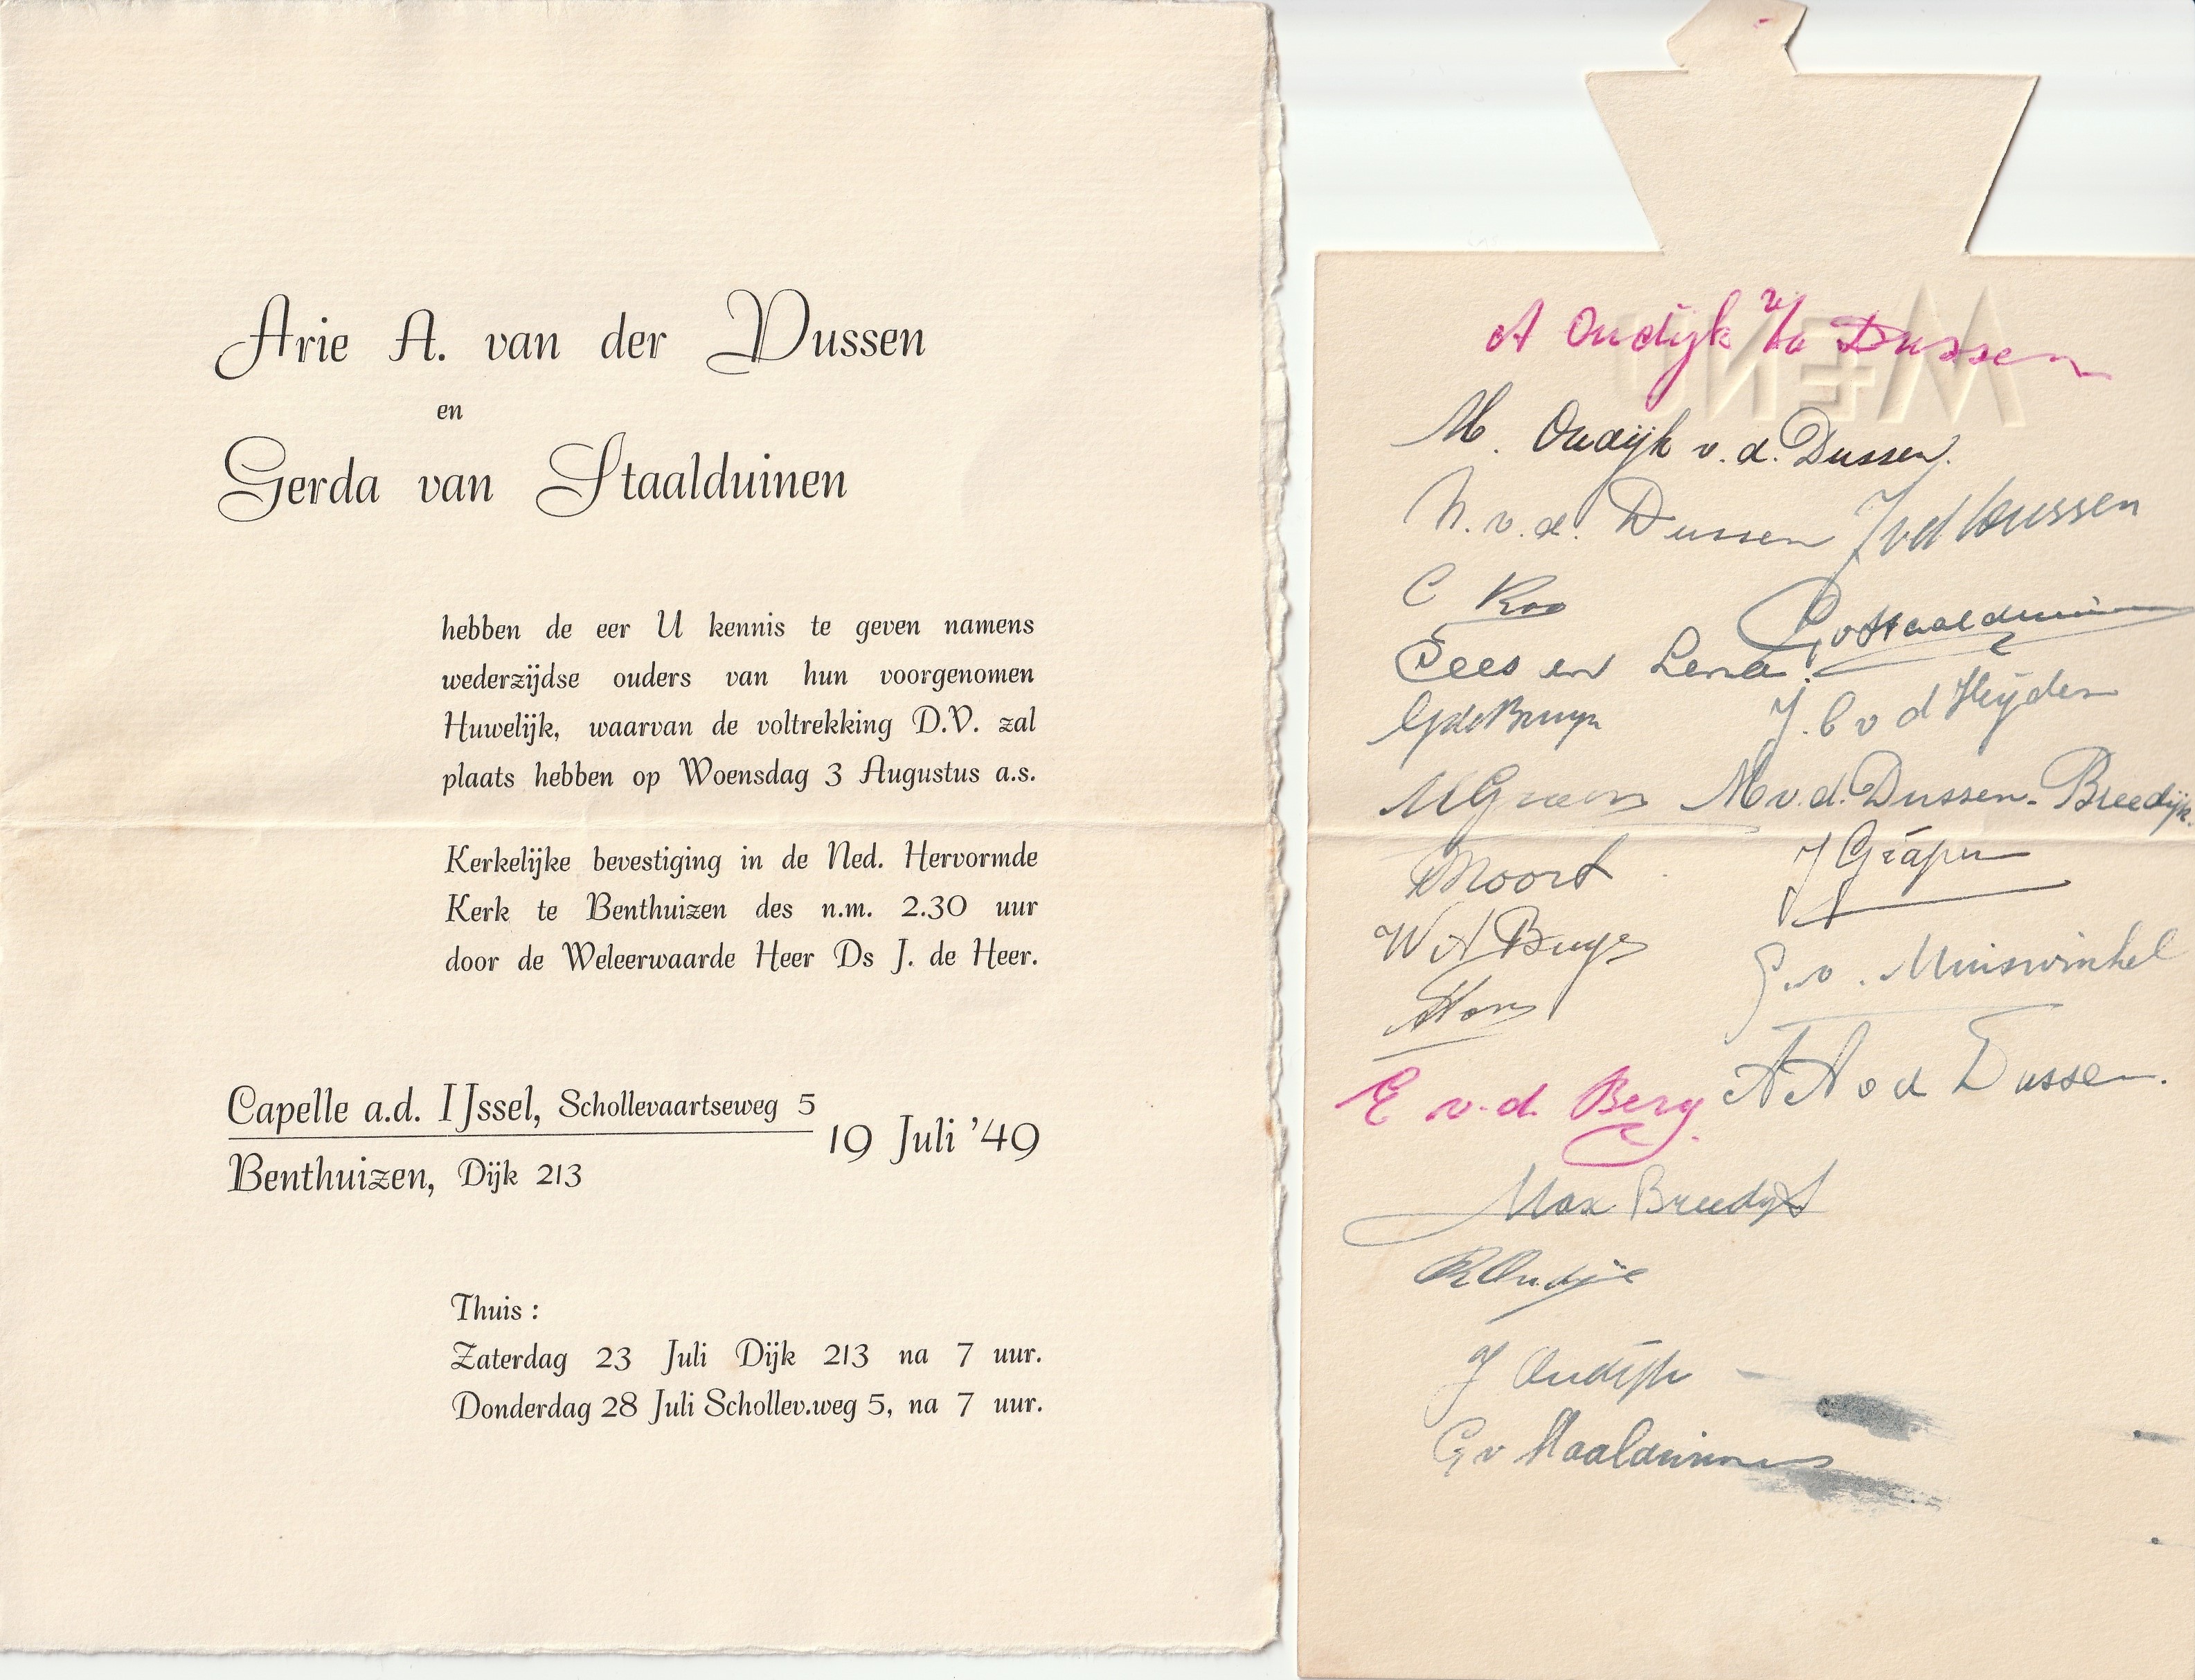 Arie A. van der Dussen
en
Gerda van Staalduinen
hebben de eer U kennis te geven namens
wederzijdse ouders van hun voorgenomen
Huwelijk, waarvan de voltrekking D.V. zal
plaats hebben op Woensdag 3 Augustus a.s.
Kerkelijke bevestiging in de Ned. Hervormde
Kerk te Benthuizen des n.m. 2.30 uur
door de Weleerwaarde Heer Ds J. de Heer.
Capelle a.d. IJssel, Schollevaartseweg 5
19 Juli '49
Benthuizen, Dijk 213
Thuis :
Zaterdag 23 Juli Dijk 213 na 7 uur.
Donderdag 28 Juli Schollev.weg 5, na 7 uur.
MENU
A Oudijk Dussen
M. Oudijk v. d. Dussen.
N. v. d. Dussen J vd Dussen
C
Cees en Lena.
G de Bruyn J. C v d Heijden
M v. d. Dussen-Breedijk.
Noort
W A Buys G. v. Muiswinkel
E v. d. Berg. A A v d Dussen.
Max Breedijk
R Oudijk
J Oudijk
G v Staalduinen